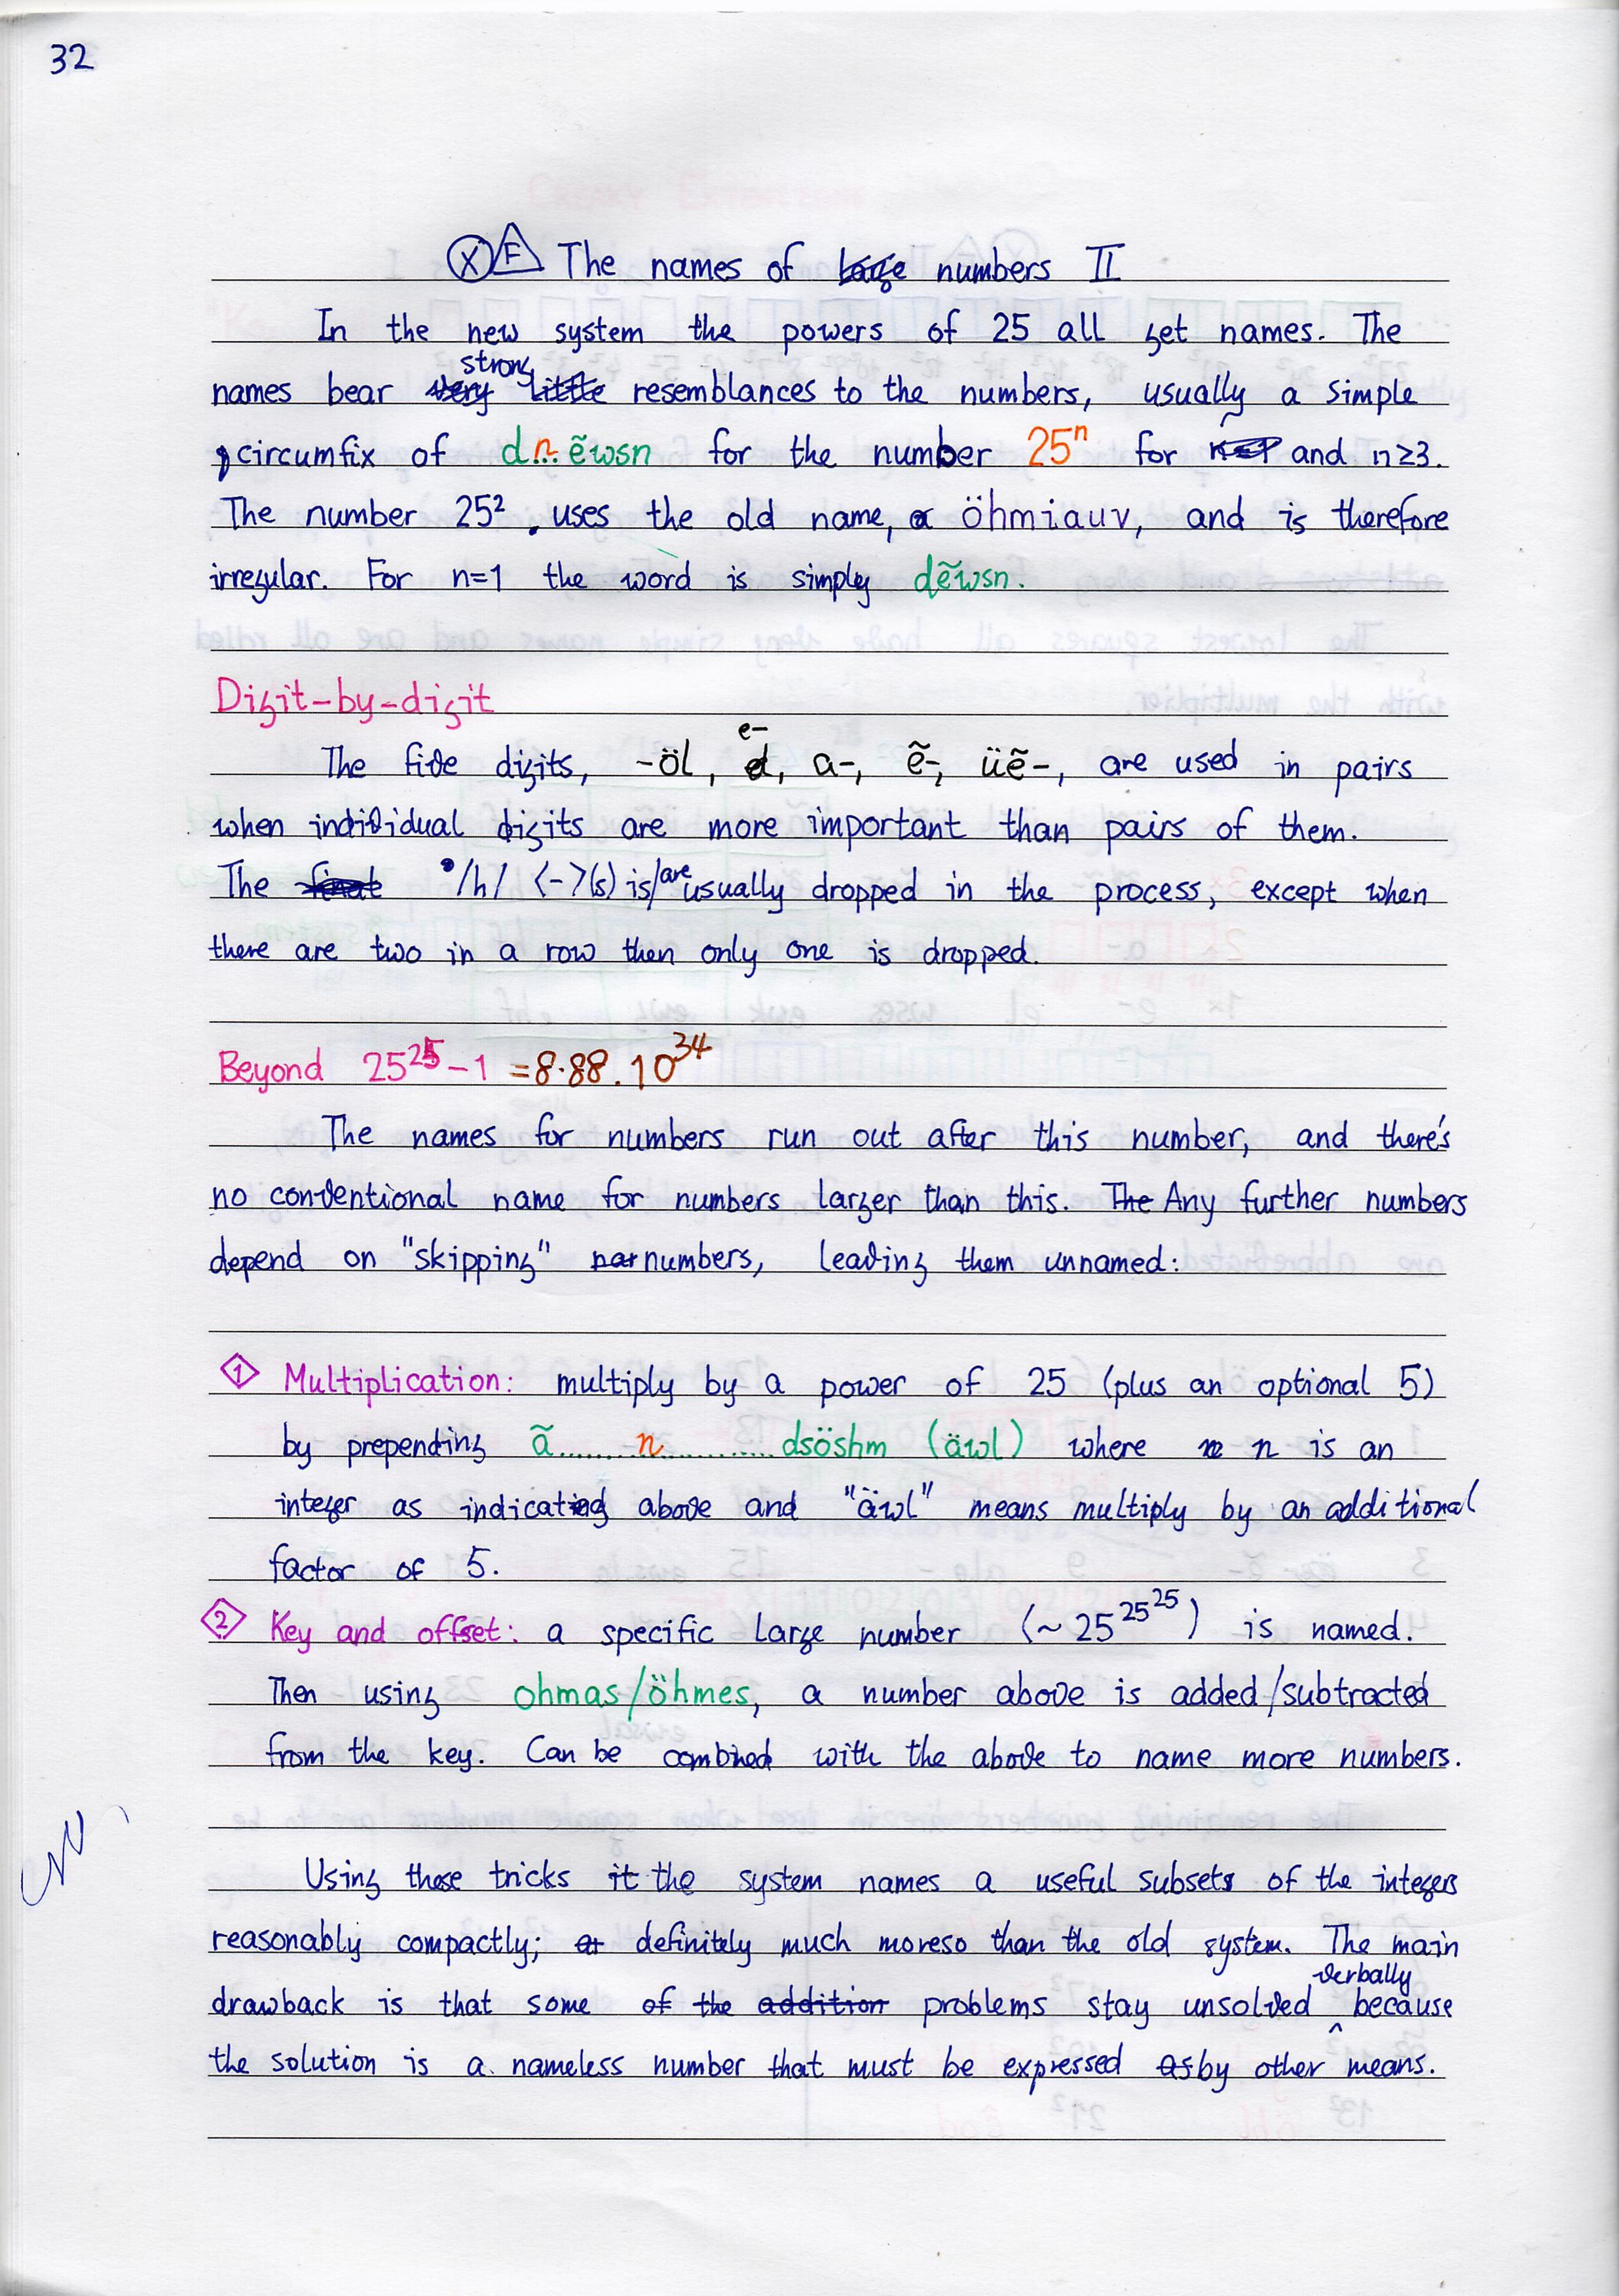 32
ⓍF The names of large numbers II
In the new system the powers of 25 all get names. The
strong
names bear very little resemblances to the numbers, usually a simple
circumfix of dn...ẽwsn for the number 25ⁿ for and n≥3.
The number 25², uses the old name, öhmiauv, and is therefore
irregular. For n=1 the word is simply dẽwsn.
Digit-by-digit
e-
The five digits, -öl, d, a-, ẽ-, üẽ-, are used in pairs
when individual digits are more important than pairs of them.
The final /h/ <-> (s) is/are usually dropped in the process, except when
there are two in a row then only one is dropped.
Beyond 25²⁵-1 =8·88.10³⁴
The names for numbers run out after this number, and there's
no conventional name for numbers larger than this. The Any further numbers
depend on "skipping" nar numbers, leaving them unnamed:
1 Multiplication: multiply by a power of 25 (plus an optional 5)
by prepending ã.......n...........dsöshm (äwl) where n n is an
integer as indicated above and "äwl" means multiply by an additional
factor of 5.
2 Key and offset: a specific large number (~25^25^25) is named.
Then using ohmas/öhmes, a number above is added/subtracted
from the key. Can be combined with the above to name more numbers.
Using these tricks it the system names a useful subsets of the integers
reasonably compactly; definitely much moreso than the old system. The main
verbally
drawback is that some of the addition problems stay unsolved ^ because
the solution is a nameless number that must be expressed as by other means.